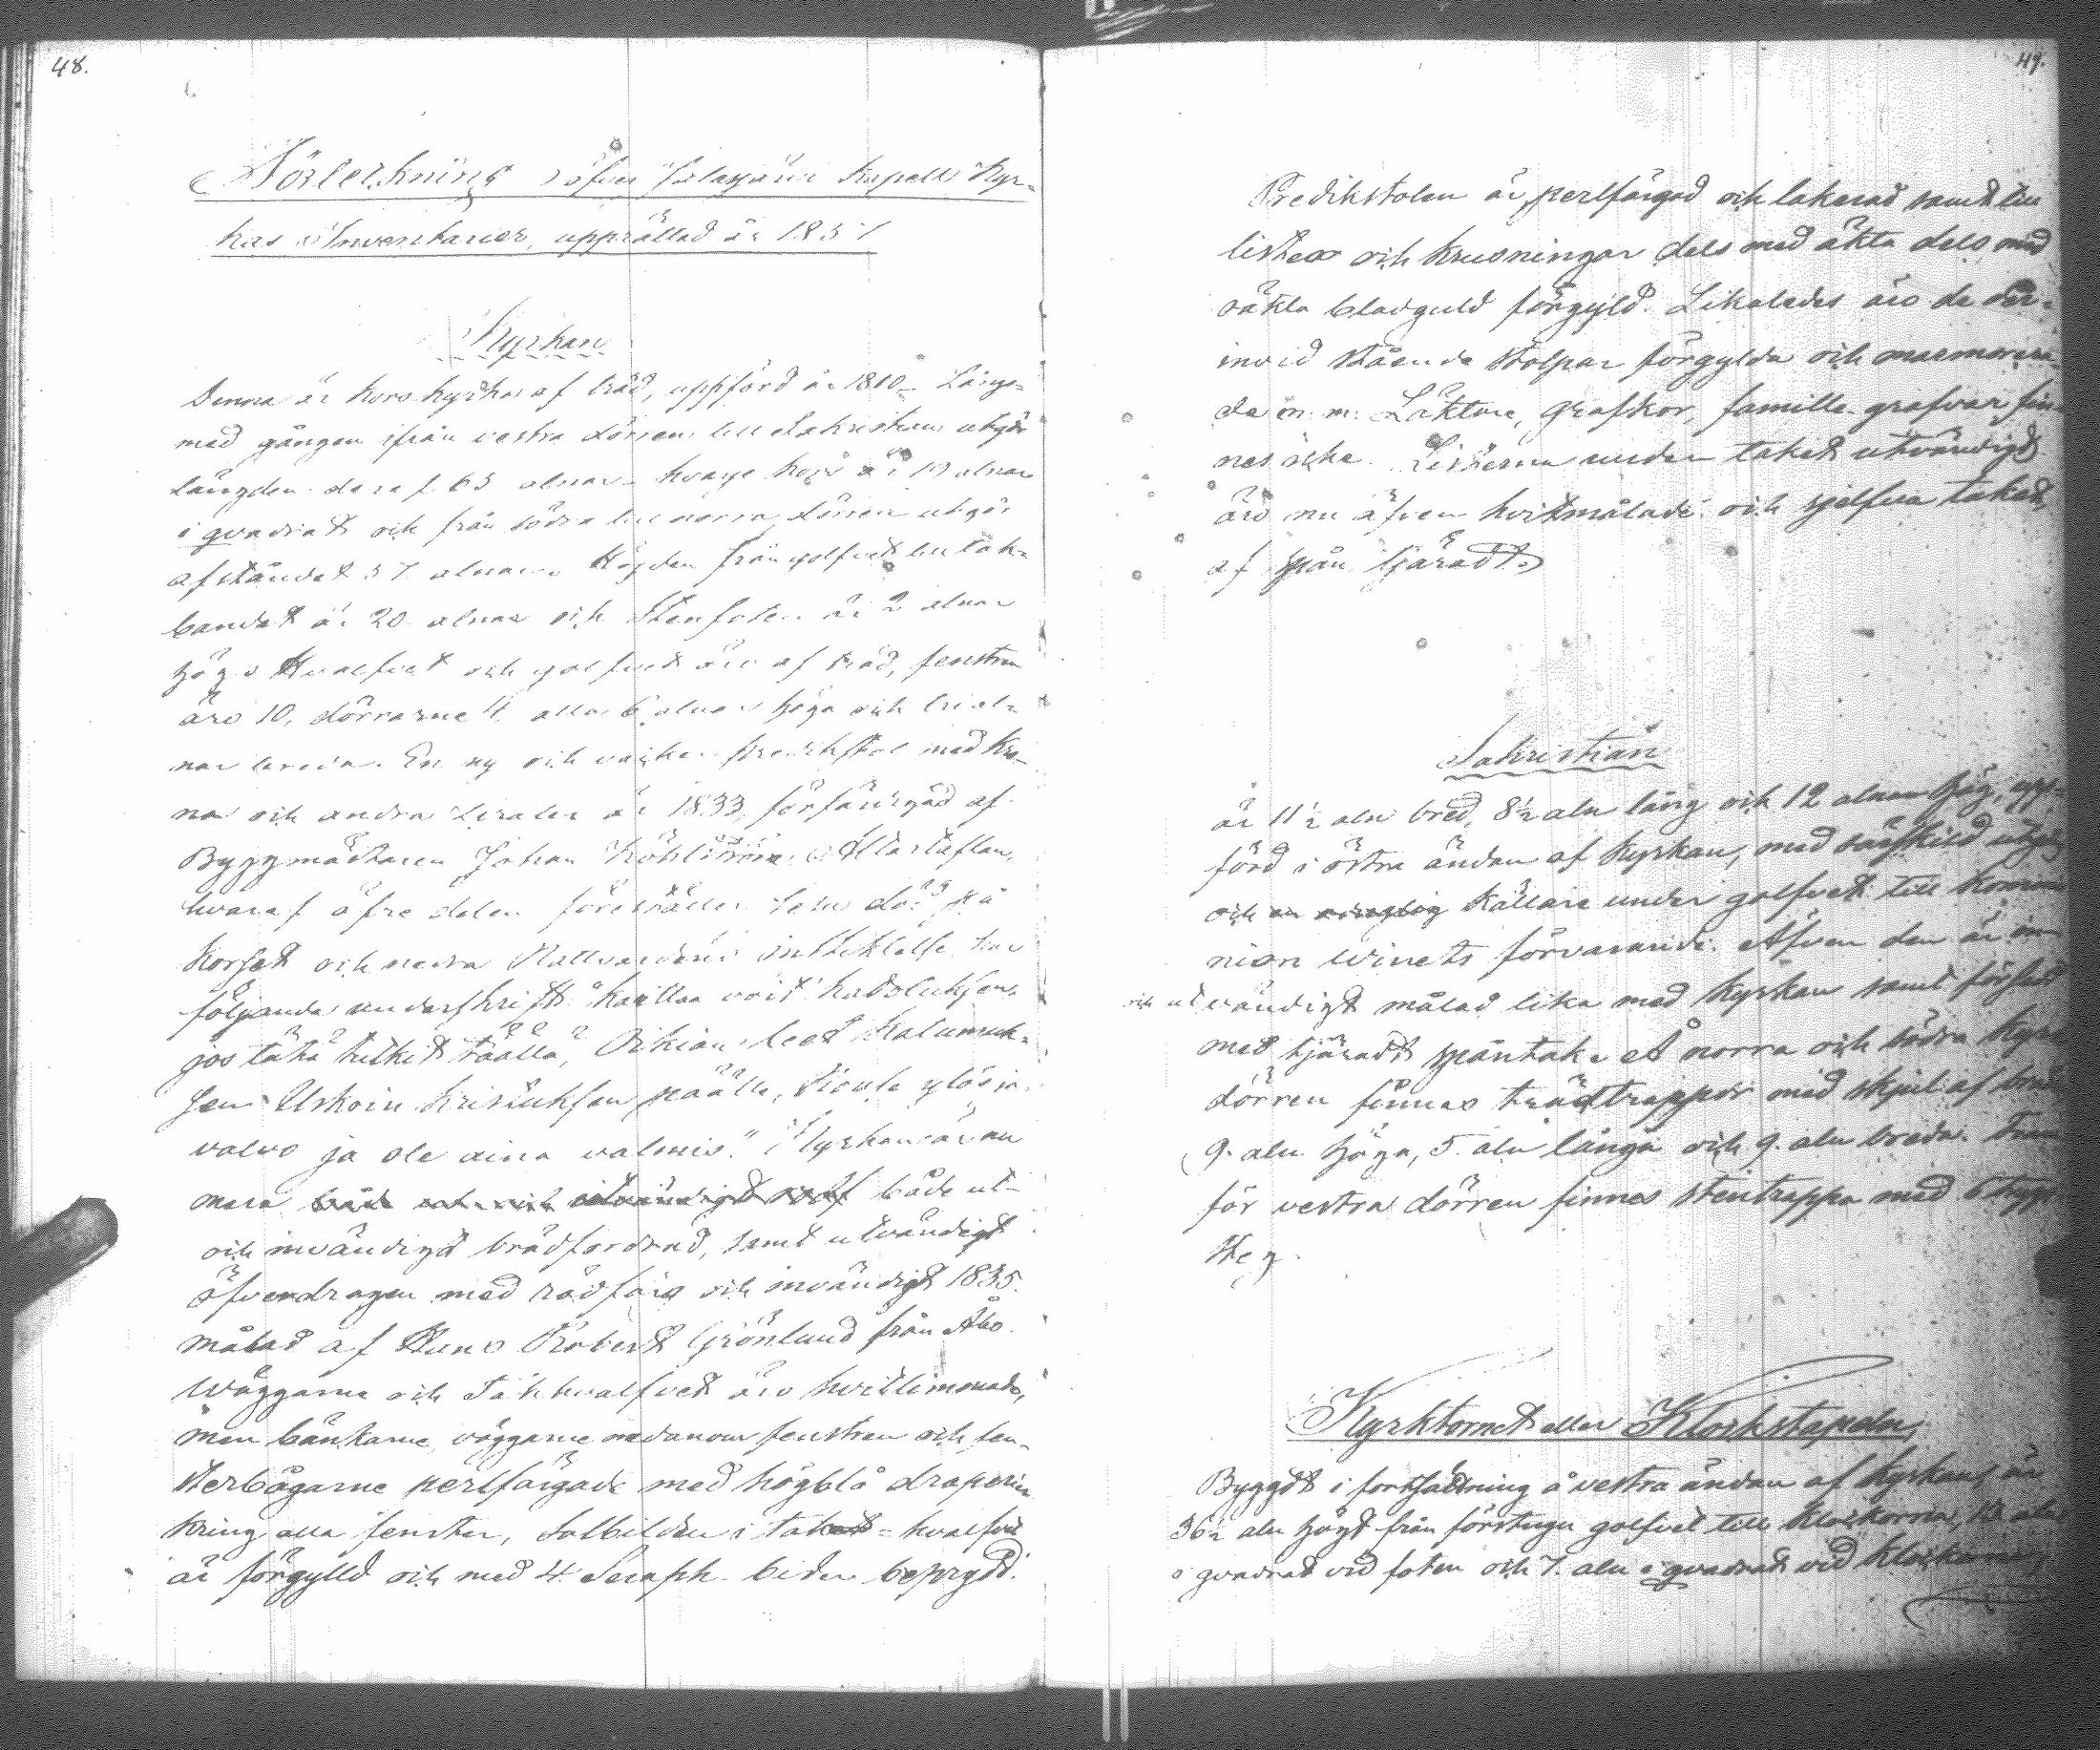 48.
Förteckning öfver Jalasjärvi Kapells Kyr-
kas Inventarier, upprättad år 1857
Kyrkan
Denna är Korskyrka af träd, uppförd år 1800. Längs-
med gången ifrån vestra dörren till Sakristian utgör
längden deraf 63 alnar hvarje kors är 19 alnar
i qvadrat och från södra till norra dörren utgör
afståndet 57 alnar. Högden från golfvet till tak-
bandet är 20 alnar och Stenfoten är 2 alnar
hög. Hvalfvet och golfvet äro af träd, fenstren
äro 10, dörrarne 4, alla 6 alnar höga och tre al-
nar breda. En ny och vacker predikstol med kro-
na och andra zirater är 1833 förfärdigad af
Byggmästaren Johan Kohlström. Altartaflan,
hvaraf öfre delen föreställer Jesu död på
korset och nedra Nattvardens instiktelse har
följande underskrift: "kauttaa voit katoluksen,
jos tätä tutkit täällä, Oikian teet Katumuk-
sen Uskoin kristuksen päälle, Sioula ylösin
valvo ja ole aina valmis." Kyrkan är nu
mera både ut-
och invändigt brädfordrad, samt utvändigt
öfverdragen med rödfärg och invändigt 1835
målad af Robert Grönlund från Åbo.
Wäggarne och Takhvalfvet äro hvitlimmade,
men bänkarne väggarne nedanom fenstren och fen-
sterbågarne perlfärgade med högblå draperier
kring alla fenster, Solbilden i tak-hvalfvet
är förgylld och med 4 Seraph beder beprydd.
49.
Predikstolen är perlfärgad och lakerad samt till
lister och krusningar dels med äkta dels med
oäkta bladguld förgyld. Likaledes äro de der-
invid stående stolpar förgylda och marmorera-
de m. m. Läktare, grafkor, famille grafvar fin-
nes icke. Listerna under taket utvändigt
äro nu äfven hvitmålade och sjelfva taket
af spån tjäradt.
Sakristian
är 11½ aln bred, 8½ aln lång och 12 alnar hög, upp-
förd i östra ändan af Kyrkan, med särskild utgång
och källare under golfvet till kommu-
nion winets förvarande. Äfven den är in
och utvändigt målad lika med Kyrkan samt försedd
med tjäradt spåntak. Å norra och södra Kyrk
dörren finnes trädtrappor med skjul af bräd
9. aln höga, 5. aln långa och 9. aln breda. Fram
för vestra dörren finnes stentrappa med 6 trapp
steg.
Kyrktornet eller Klockstapeln,
Byggdt i fortsättning å vestra ändan af Kyrkan, är
36½ aln högt från förstugu golfvet till klockorna, 13 aln
i qvadrat vid foten och 7. aln i qvadrat vid klockorna